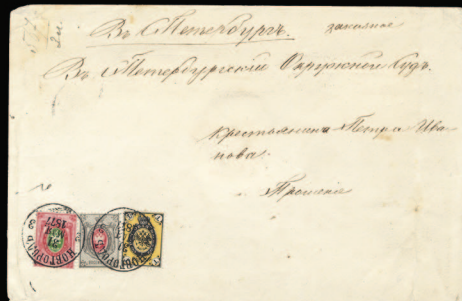 Въ С Петербургъ. заказное
Въ С Петербургскій Окружный Судъ.
Крестьянина Петра Ива
нова.
Прошеніе
НОВГОРОДЪ